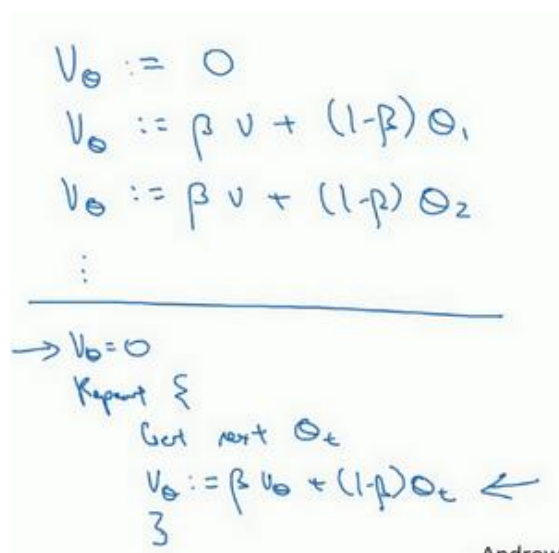 V_θ := 0
V_θ := β v + (1-β) θ₁
V_θ := β v + (1-β) θ₂
⋮
→ V_θ = 0
Repeat {
Get next θ_t
V_θ := β V_θ + (1-β) θ_t ←
}
Andrew